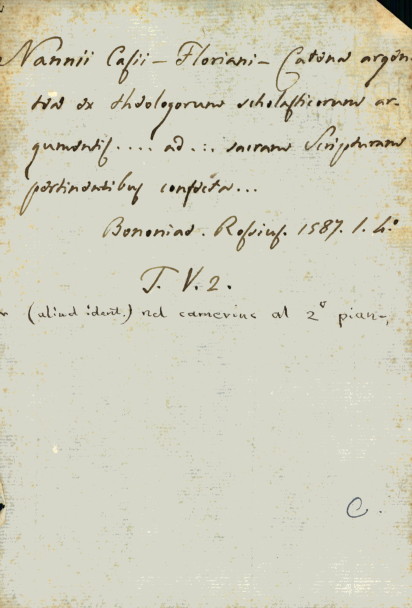 Nannii Casii - Floriani - Catenae argen
teae ex theologorum scholasticorum ar-
gumentis .... ad ... sacram Scripturam
pertinentibus confecta...
Bononiae. Rossius. 1587. 1. 4.º
T. V. 2.
(aliud ident.) nel camerino al 2º piano
C.